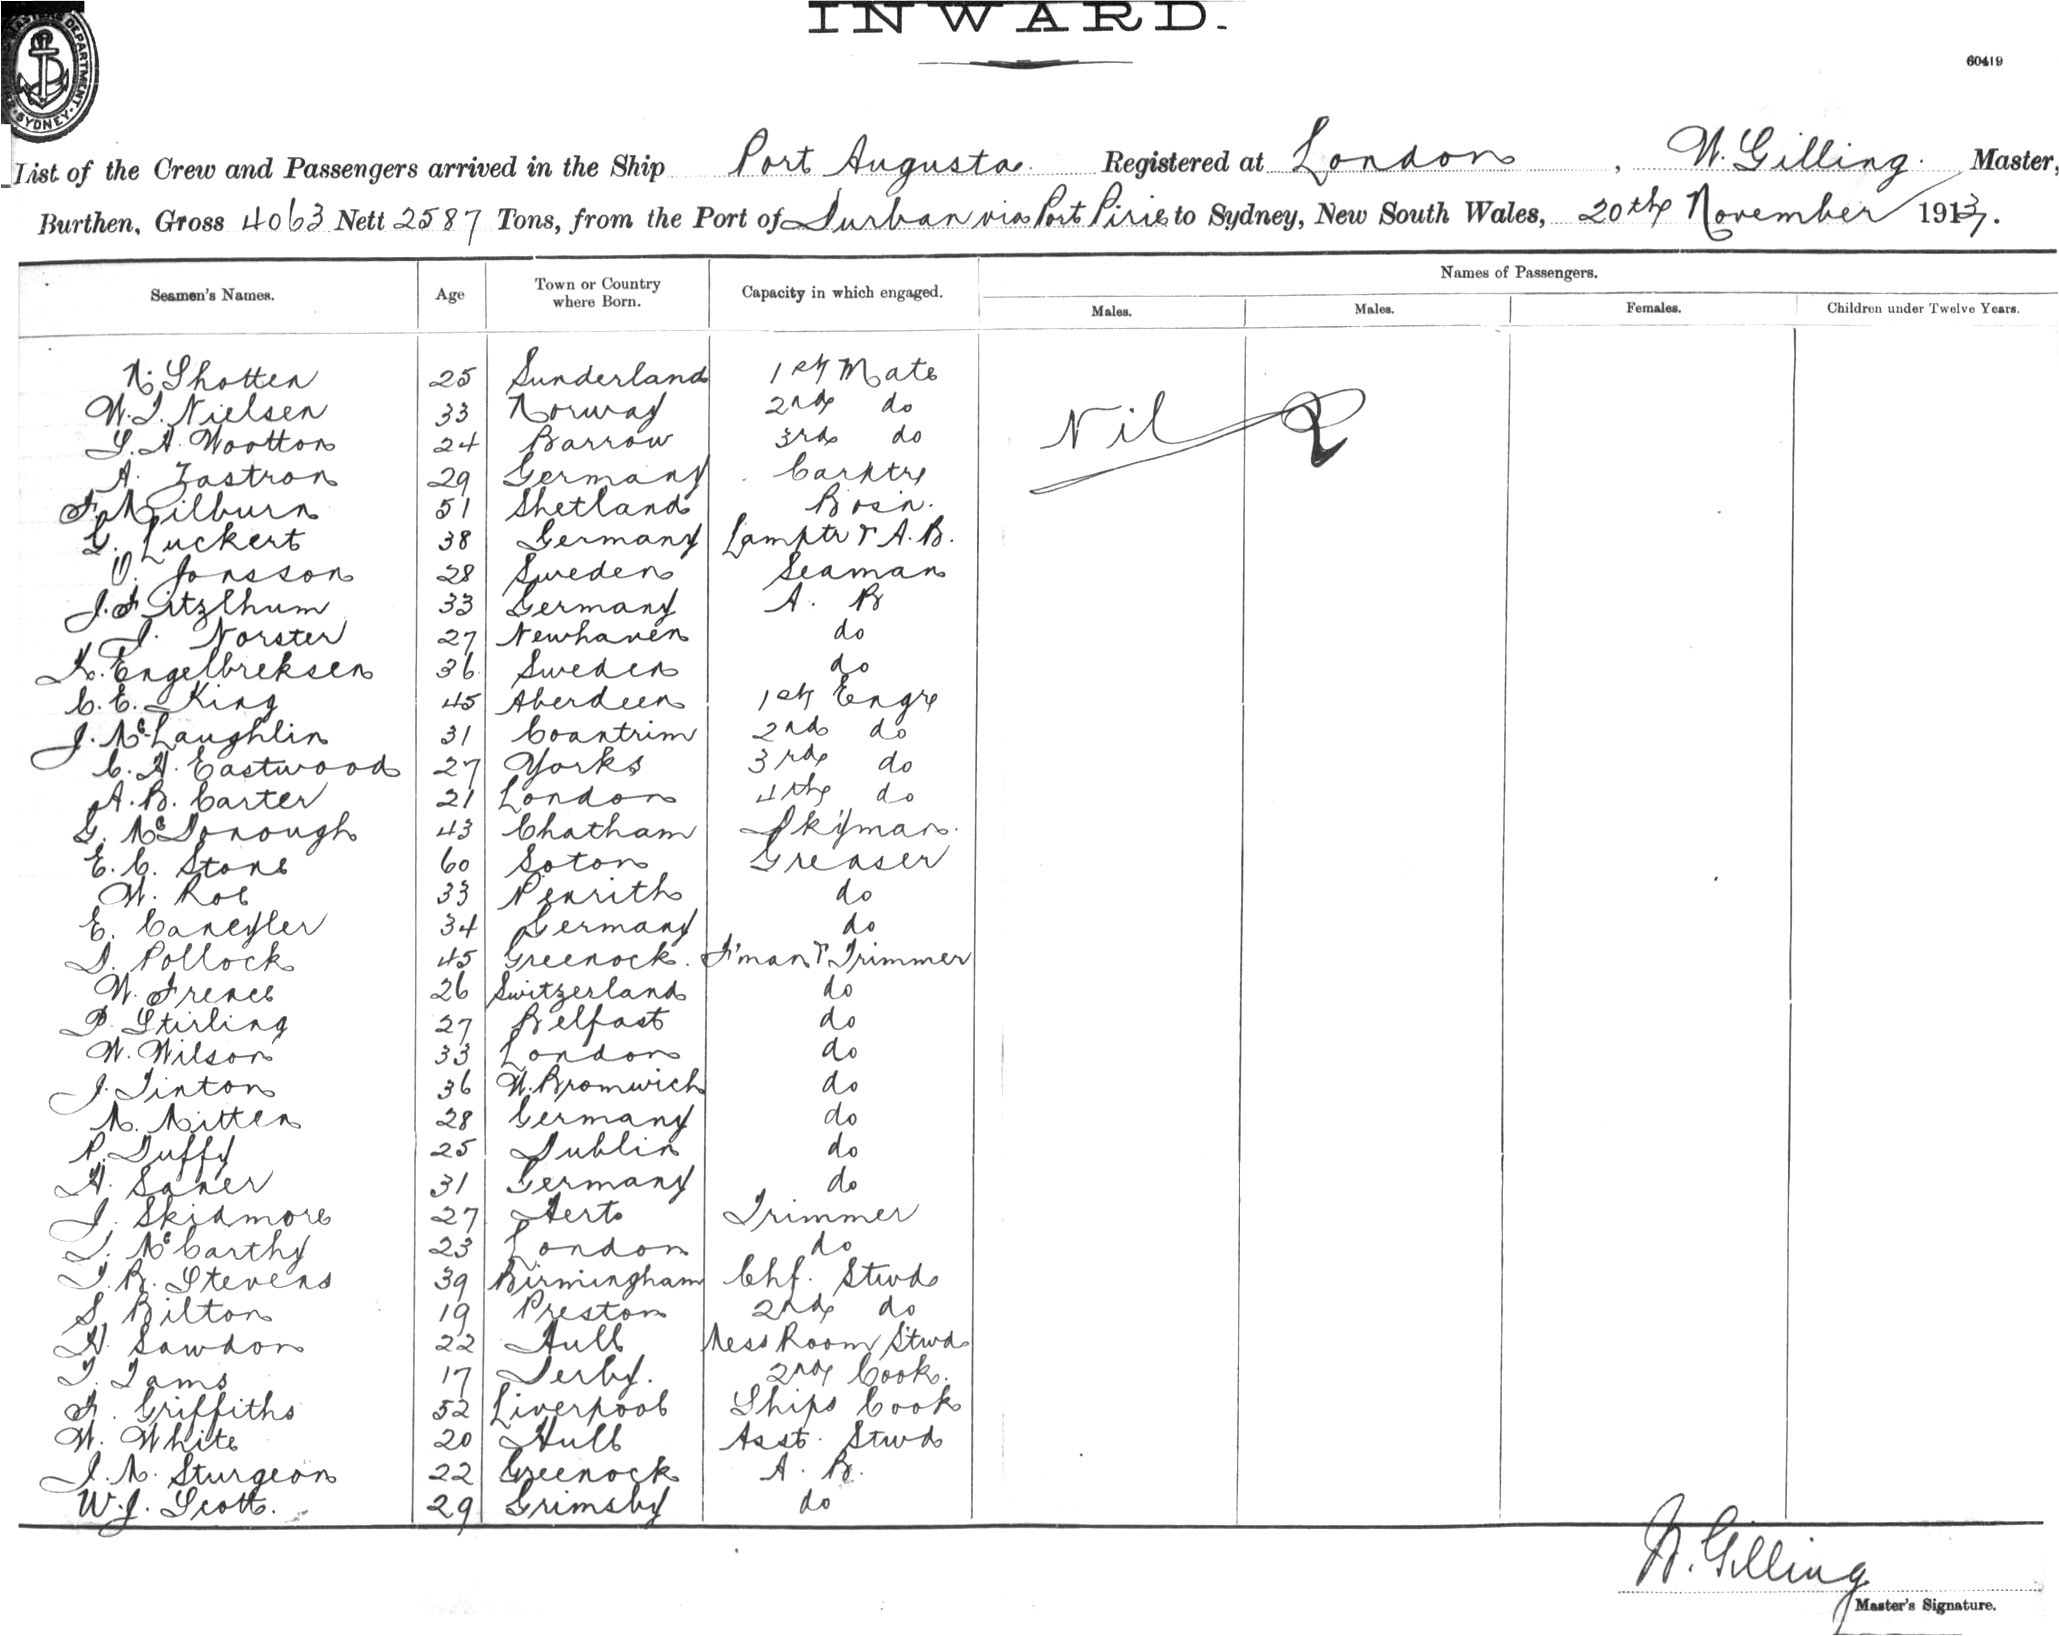 INWARD.
DEPARTMENT SYDNEY
60419
List of the Crew and Passengers arrived in the Ship Port Augusta Registered at London, W. Gilling. Master,
Burthen, Gross 4063 Nett 2587 Tons, from the Port of Durban via Port Pirie to Sydney, New South Wales, 20th November 1913.
Seamen's Names. Age Town or Country where Born. Capacity in which engaged. Names of Passengers.
Males. Males. Females. Children under Twelve Years.
N. Shotten 25 Sunderland 1st Mate
W. J. Nielsen 33 Norway 2nd do
Nil
A. Wootton 24 Barrow 3rd do
A. Zastron 29 Germany Carptr
F. Milburn 51 Shetland Bosn.
G. Luckert 38 Germany Lamptr & A.B.
O. Jonsson 28 Sweden Seaman
J. Fitzlhum 33 Germany A. B
J. Norster 27 Newhaven do
K. Engelbreksen 36 Sweden do
C. E. King 45 Aberdeen 1st Engr
J. McLaughlin 31 Coantrim 2nd do
C. H. Eastwood 27 Yorks 3rd do
A. B. Carter 21 London 4th do
G. McDonough 43 Chatham Dkyman.
E. C. Stone 60 Soton Greaser
W. Roe 33 Penrith do
E. 34 Germany do
D. Pollock 45 Greenock. F'man & Trimmer
W. 26 Switzerland do
P. Stirling 27 Belfast do
W. Wilson 33 London do
J. Tinton 36 W. Bromwich do
M. Mitten 28 Germany do
P. Duffy 25 Dublin do
H. Saner 31 Germany do
J. Skidmore 27 Herts Trimmer
J. McCarthy 23 London do
T. B. Stevens 39 Birmingham Chf. Stwd
S. Bilton 19 Preston 2nd do
H. Sawdon 22 Hull Mess Room Stwd
T. Tams 17 Derby. 2nd Cook.
F. Griffiths 52 Liverpool Ships Cook
W. White 20 Hull Asst. Stwd
J. M. Sturgeon 22 Greenock A. B.
W. J. Scott. 29 Grimsby do
W. Gilling
Master's Signature.